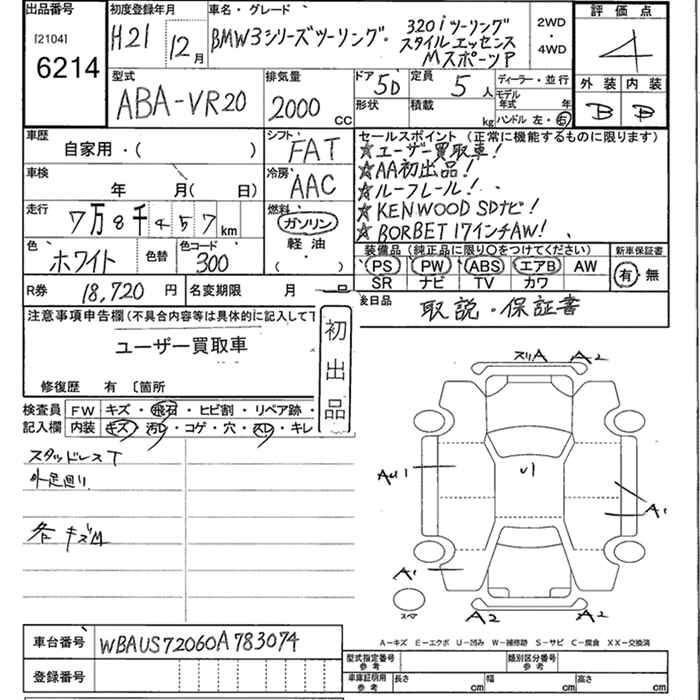 出品番号
[2104]
6214
初度登録年月
H21 12月
車名・グレード
BMW3シリーズツーリング.
320iツーリング
スタイルエッセンス
MスポーツP
2WD
・
4WD
評価点
4
外装 内装
B B
型式
ABA-VR20
排気量
2000 cc
ドア 5D
定員 5人
形状
積載 kg
ディーラー・並行
モデル
年式 年
ハンドル 左・右
車歴
自家用・( )
シフト
FAT
セールスポイント (正常に機能するものに限ります)
★ユーザー買取車!
★AA初出品!
★ルーフレール!
★KENWOOD SDナビ!
★BORBET 17インチAW!
車検
年 月( 日)
冷房
AAC
走行
7万8千457km
燃料
ガソリン
軽油
( )
色
ホワイト
色替
色コード
300
装備品 (純正品に限り○をつけてください)
PS PW ABS エアB AW
SR ナビ TV カワ
新車保証書
有・無
R券 18,720円
名変期限 月
後日品
取説・保証書
注意事項申告欄(不具合内容等は具体的に記入して下
ユーザー買取車
修復歴 有 〔箇所
初出品
検査員 FW キズ・飛石・ヒビ割・リペア跡・
記入欄 内装 キズ・汚レ・コゲ・穴・スレ・キレ
スタッドレスT
外足廻り
各キズM
スリA A2
AU1
U1
A1
A1
スペア
A2 A2
A-キズ E-エクボ U-凹み W-補修跡 S-サビ C-腐食 XX-交換済
車台番号 WBAUS72060A783074
登録番号
型式指定番号
参考
類別区分番号
参考
車庫証明用
参考
長さ cm 幅 cm 高さ cm